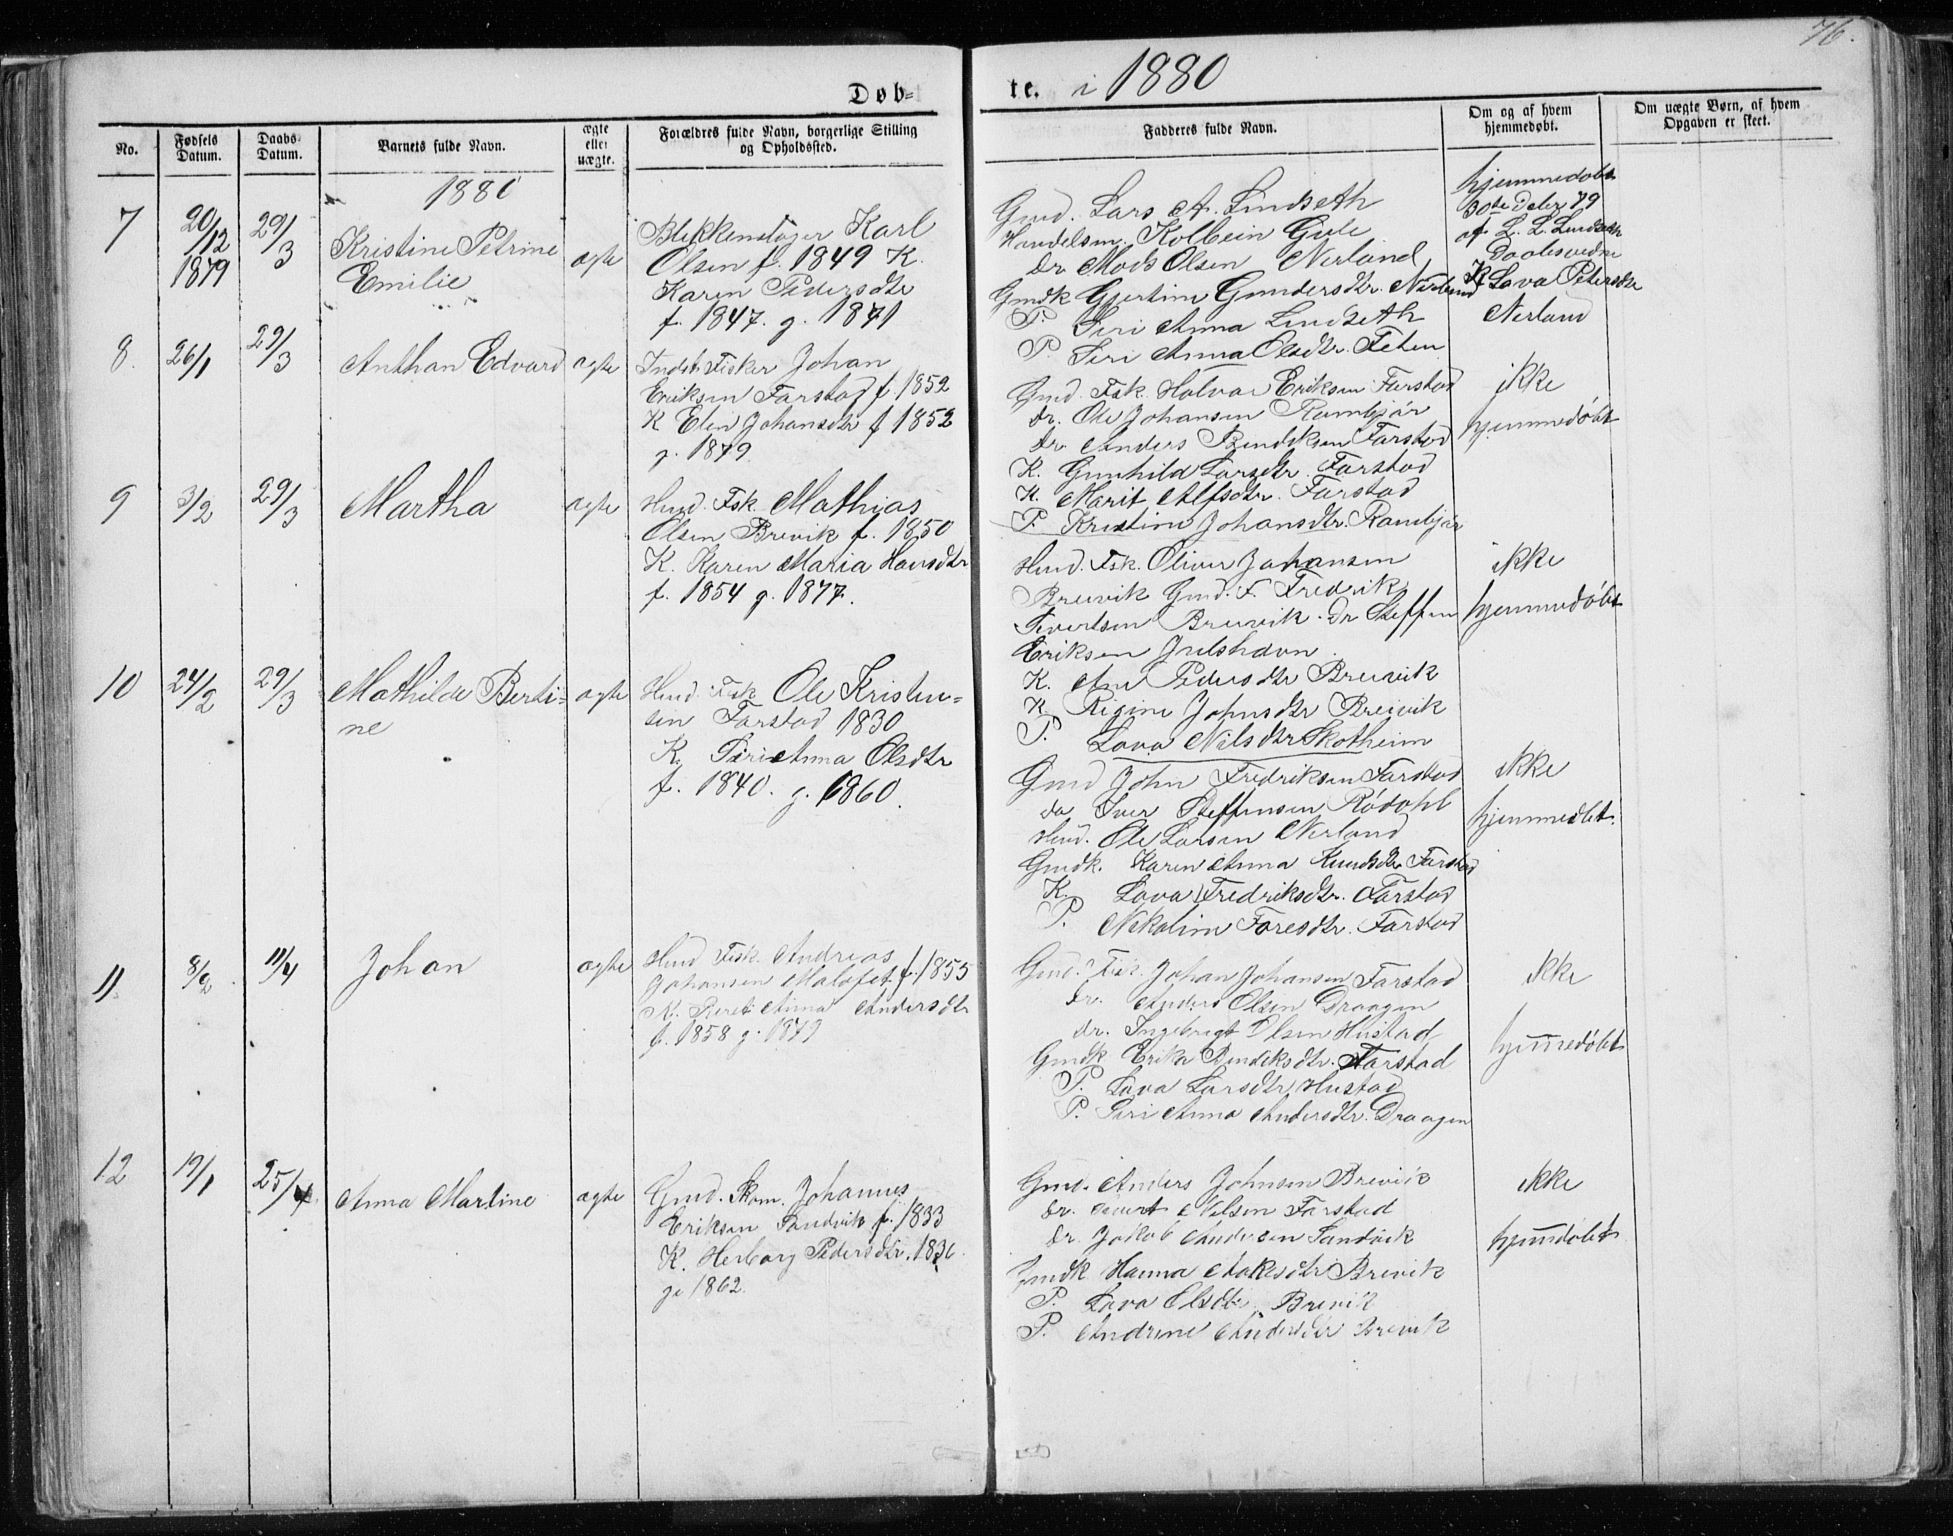 76.
Døb-
te. i 1880
No.
Fødsels Datum.
Daabs Datum.
Barnets fulde Navn.
ægte eller uægte.
Forældres fulde Navn, borgerlige Stilling og Opholdssted.
Fadderes fulde Navn.
Om og af hvem hjemmedøbt.
Om uægte Børn, af hvem Opgaven er skeet.
1880
7
20/12 1879
29/3
Kristine Petrine
Emilie
ægte
Blikkenslager Karl
Olsen f. 1849 K.
Karen Pedersdtr
f. 1847. g. 1871
Gmd. Lars A. Lindseth
Handelsm. Kolbein Gule
dr Mads Olsen Nerland
Gmdk Gjertine Gundersdtr. Nerland
P. Siri Anna Lindseth
P. Siri Anna Olsdtr. Feten
hjemmedøbt
30te Debr 79
af L. L. Lindseth
Daabsvidne
K Lava Petersdtr
Nerland
8.
26/1
29/3
Anthon Edvard
ægte
Indst Fisker Johan
Eriksen Farstad f. 1852
K Elen Johansdtr f 1852
g. 1879.
Gmd. Fsk. Halvar Eriksen Farstad
dr. Ole Johansen Rambjør
dr. Anders Bendiksen Farstad
K. Gunhild Larsdtr. Farstad
K. Marit Alfsdtr. Farstad
P. Kristine Johansdtr. Rambjør
ikke
hjemmedøbt
9
3/2
29/3
Martha
ægte
Hmd. Fsk. Mathias
Olsen Brevik f. 1850
K. Karen Maria Hansdtr
f. 1854 g. 1877.
Hmd. Fsk. Oliver Johansen
Breivik Gmd. F. Fredrik
Sivertsen Breivik. Dr Steffen
Eriksen Julshavn.
K. Ane Pedersdtr Breivik
K. Regine Johnsdtr Breivik
P. Lava Nilsdtr Skotheim
ikke
hjemmedøbt
10
24/2
29/3
Mathilde Berti-
ne
ægte
Hmd. Fsk Ole Kristen-
sen Farstad 1830
K. Siri Anna Olsdtr
f. 1840. g. 1860.
Gmd John Fredriksen Farstad
do Iver Steffensen Rødahl
Hmd. Ole Larsen Nerland
Gmdk. Karen Anna Knudsdtr Farstad
K. Lava Fredriksdtr. Farstad
P. Nikoline Toresdtr. Farstad
ikke
hjemmedøbt.
11.
8/2
11/4
Johan
ægte
Hmd Fisk. Andreas
Johansen Malefet. f. 1855
K. Beret Anna Andersdtr
f. 1858 g. 1879
Gmd. Fsk. Johan Johansen Farstad
dr. Anders Olsen Draagen
dr. Ingebrigt Olsen Hustad
Gmdk Erika Bendiksdtr. Farstad
P. Lava Larsdtr. Hustad
P. Siri Anna Andersdtr. Draagen
ikke
hjemmedøbt
12
19/1
25/4
Anna Martine
ægte
Gmd. Skom. Johannes
Eriksen Sandvik f. 1833
K. Herborg Pedersdtr. 1836.
g. 1862.
Gmd. Anders Johnsen Brevik
dr. Sivert Nilsen Farstad
dr. Jakob Andersen Sandvik
Gmdk Hanna Aakesdtr Brevik
P. Lava Olsdtr Brevik
P. Andrine Andersdtr Brevik
ikke
hjemmdøbt